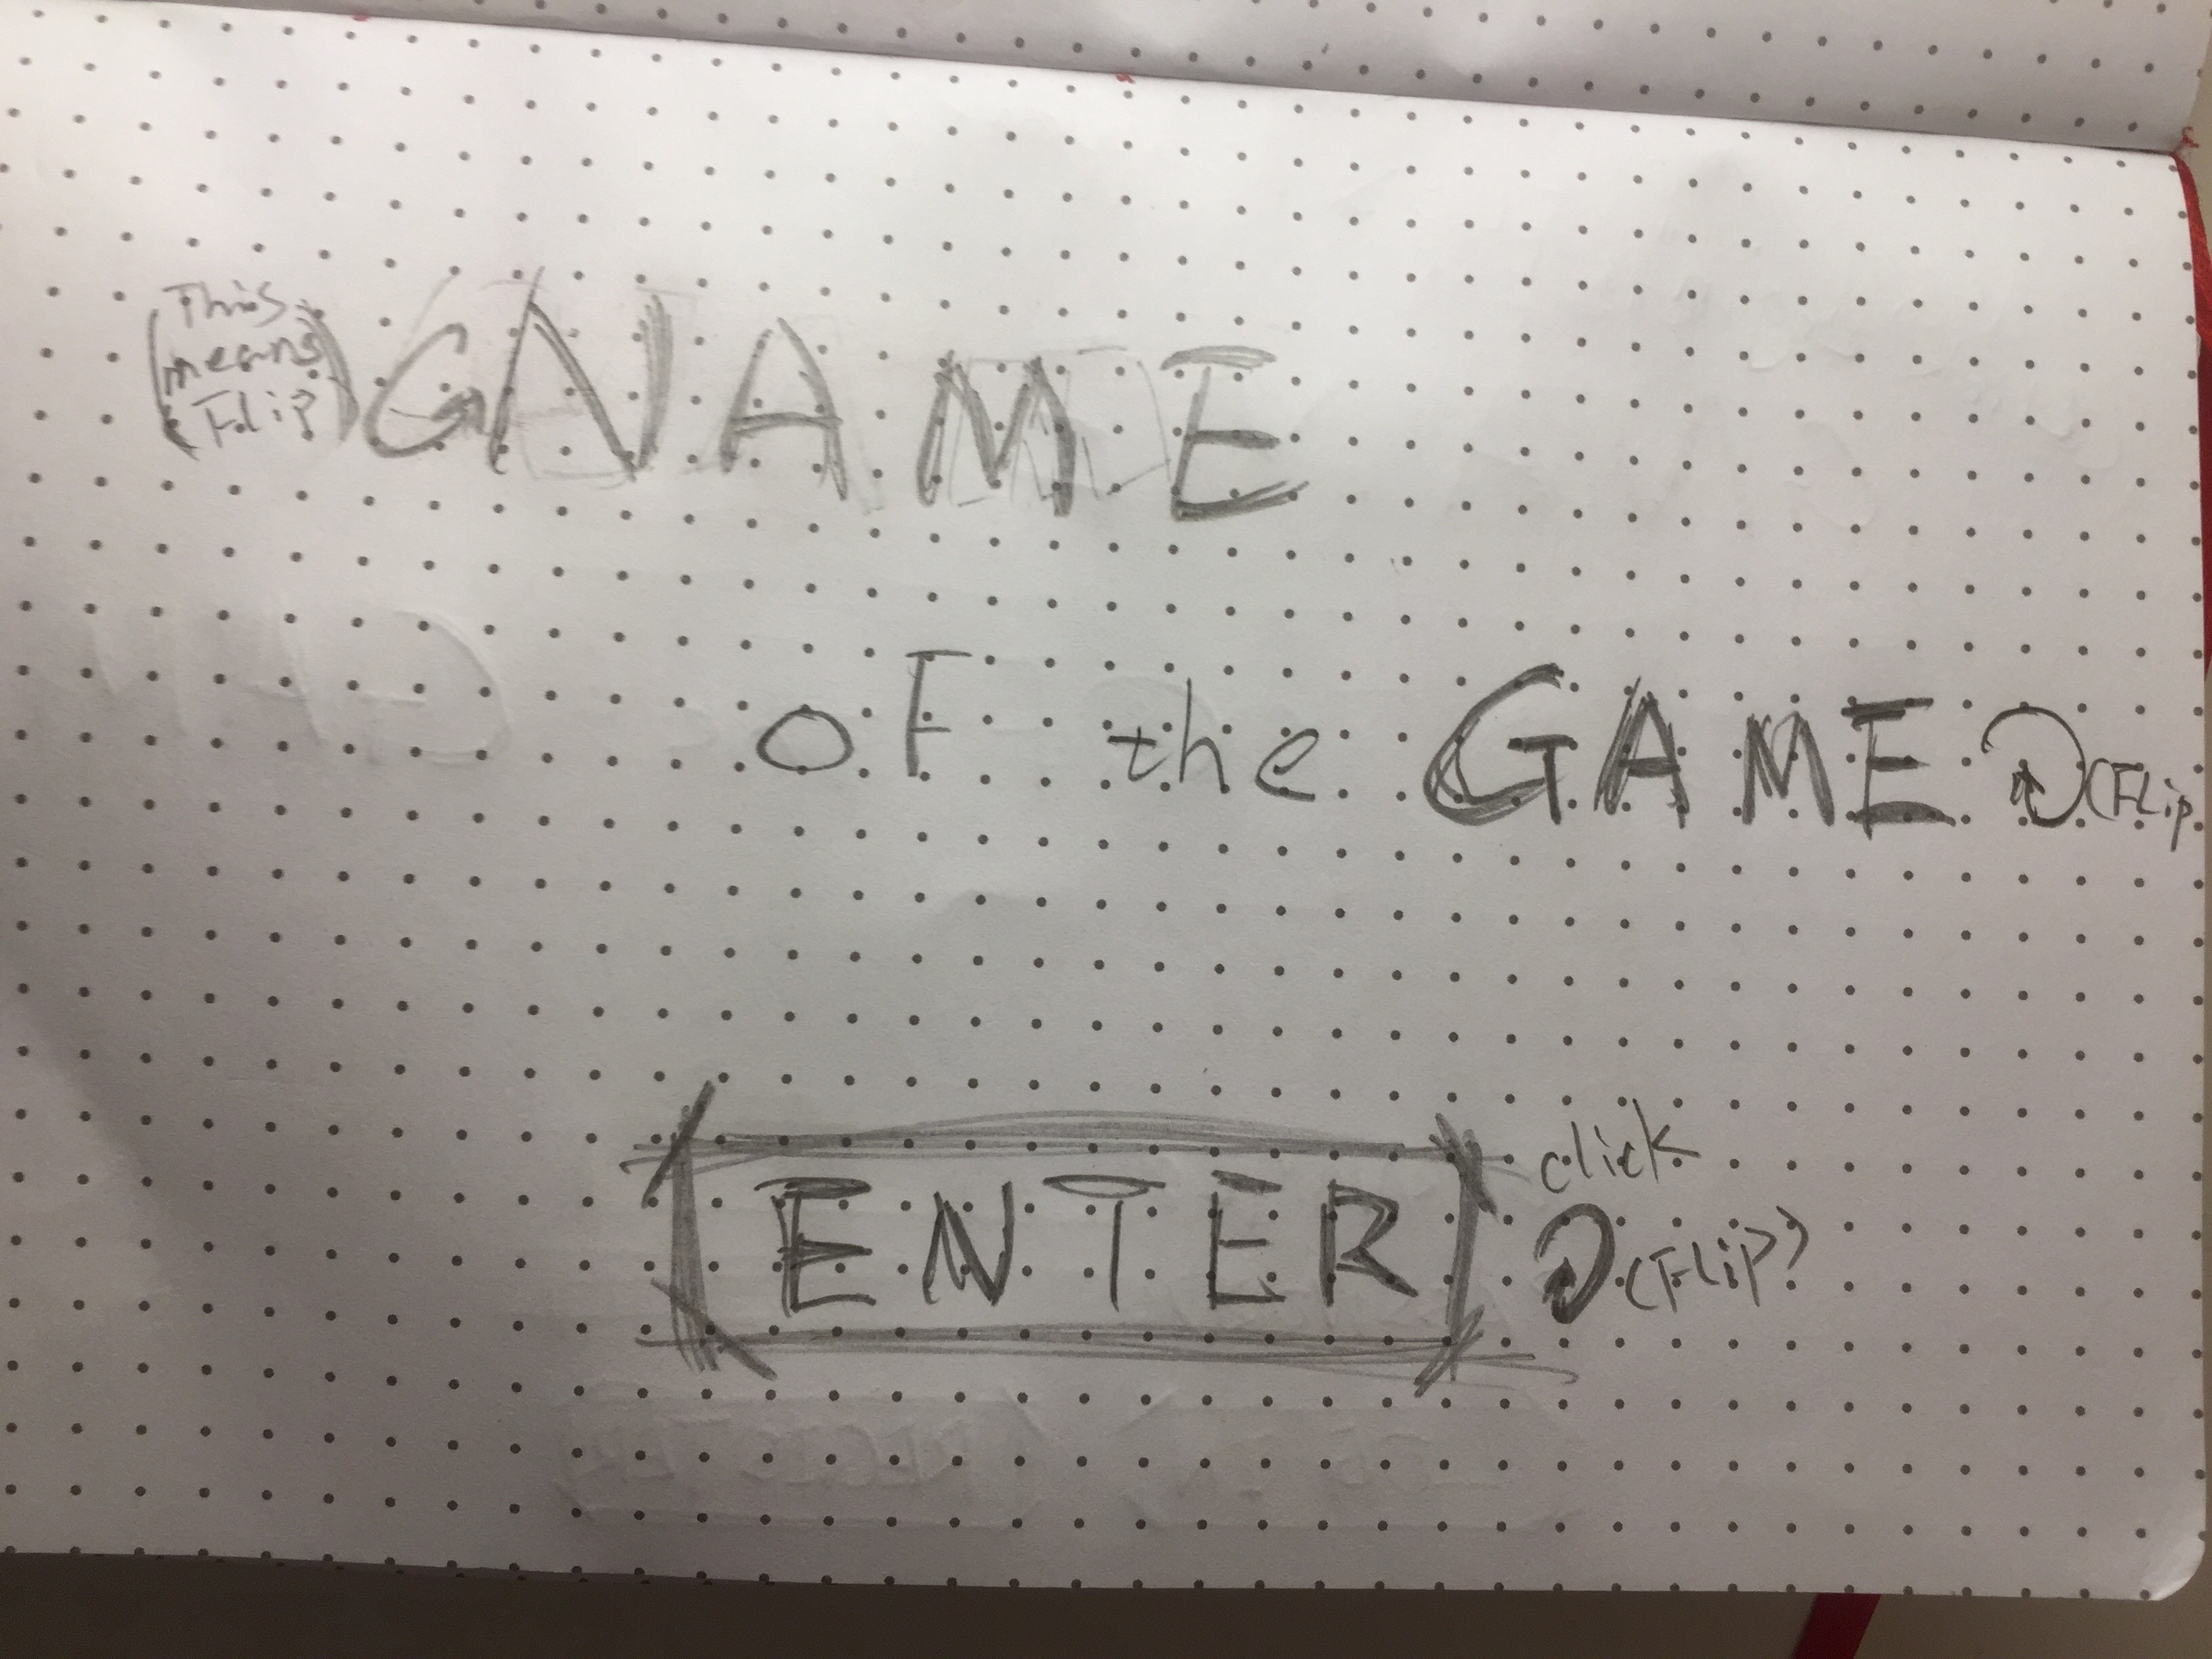 (This means Flip) GNAME
of the GAME (Flip
ENTER click (Flip)